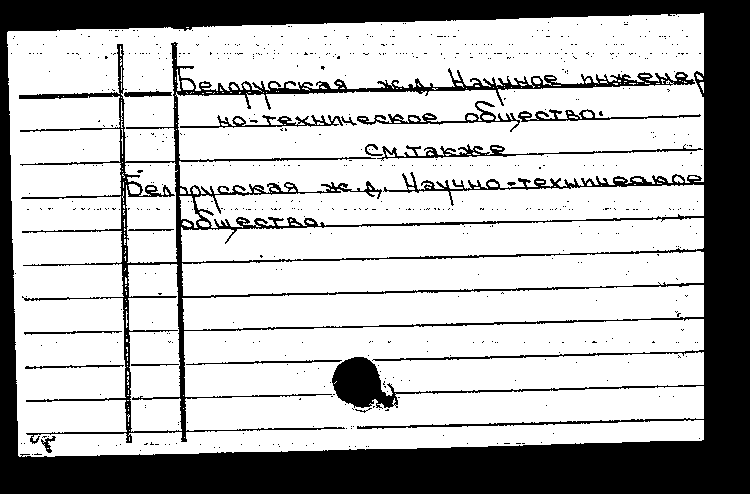 Белорусская ж.д. Научное инженер
но-техническое общество.
см.также
Белорусская ж.д. Научно-техническое
общество.